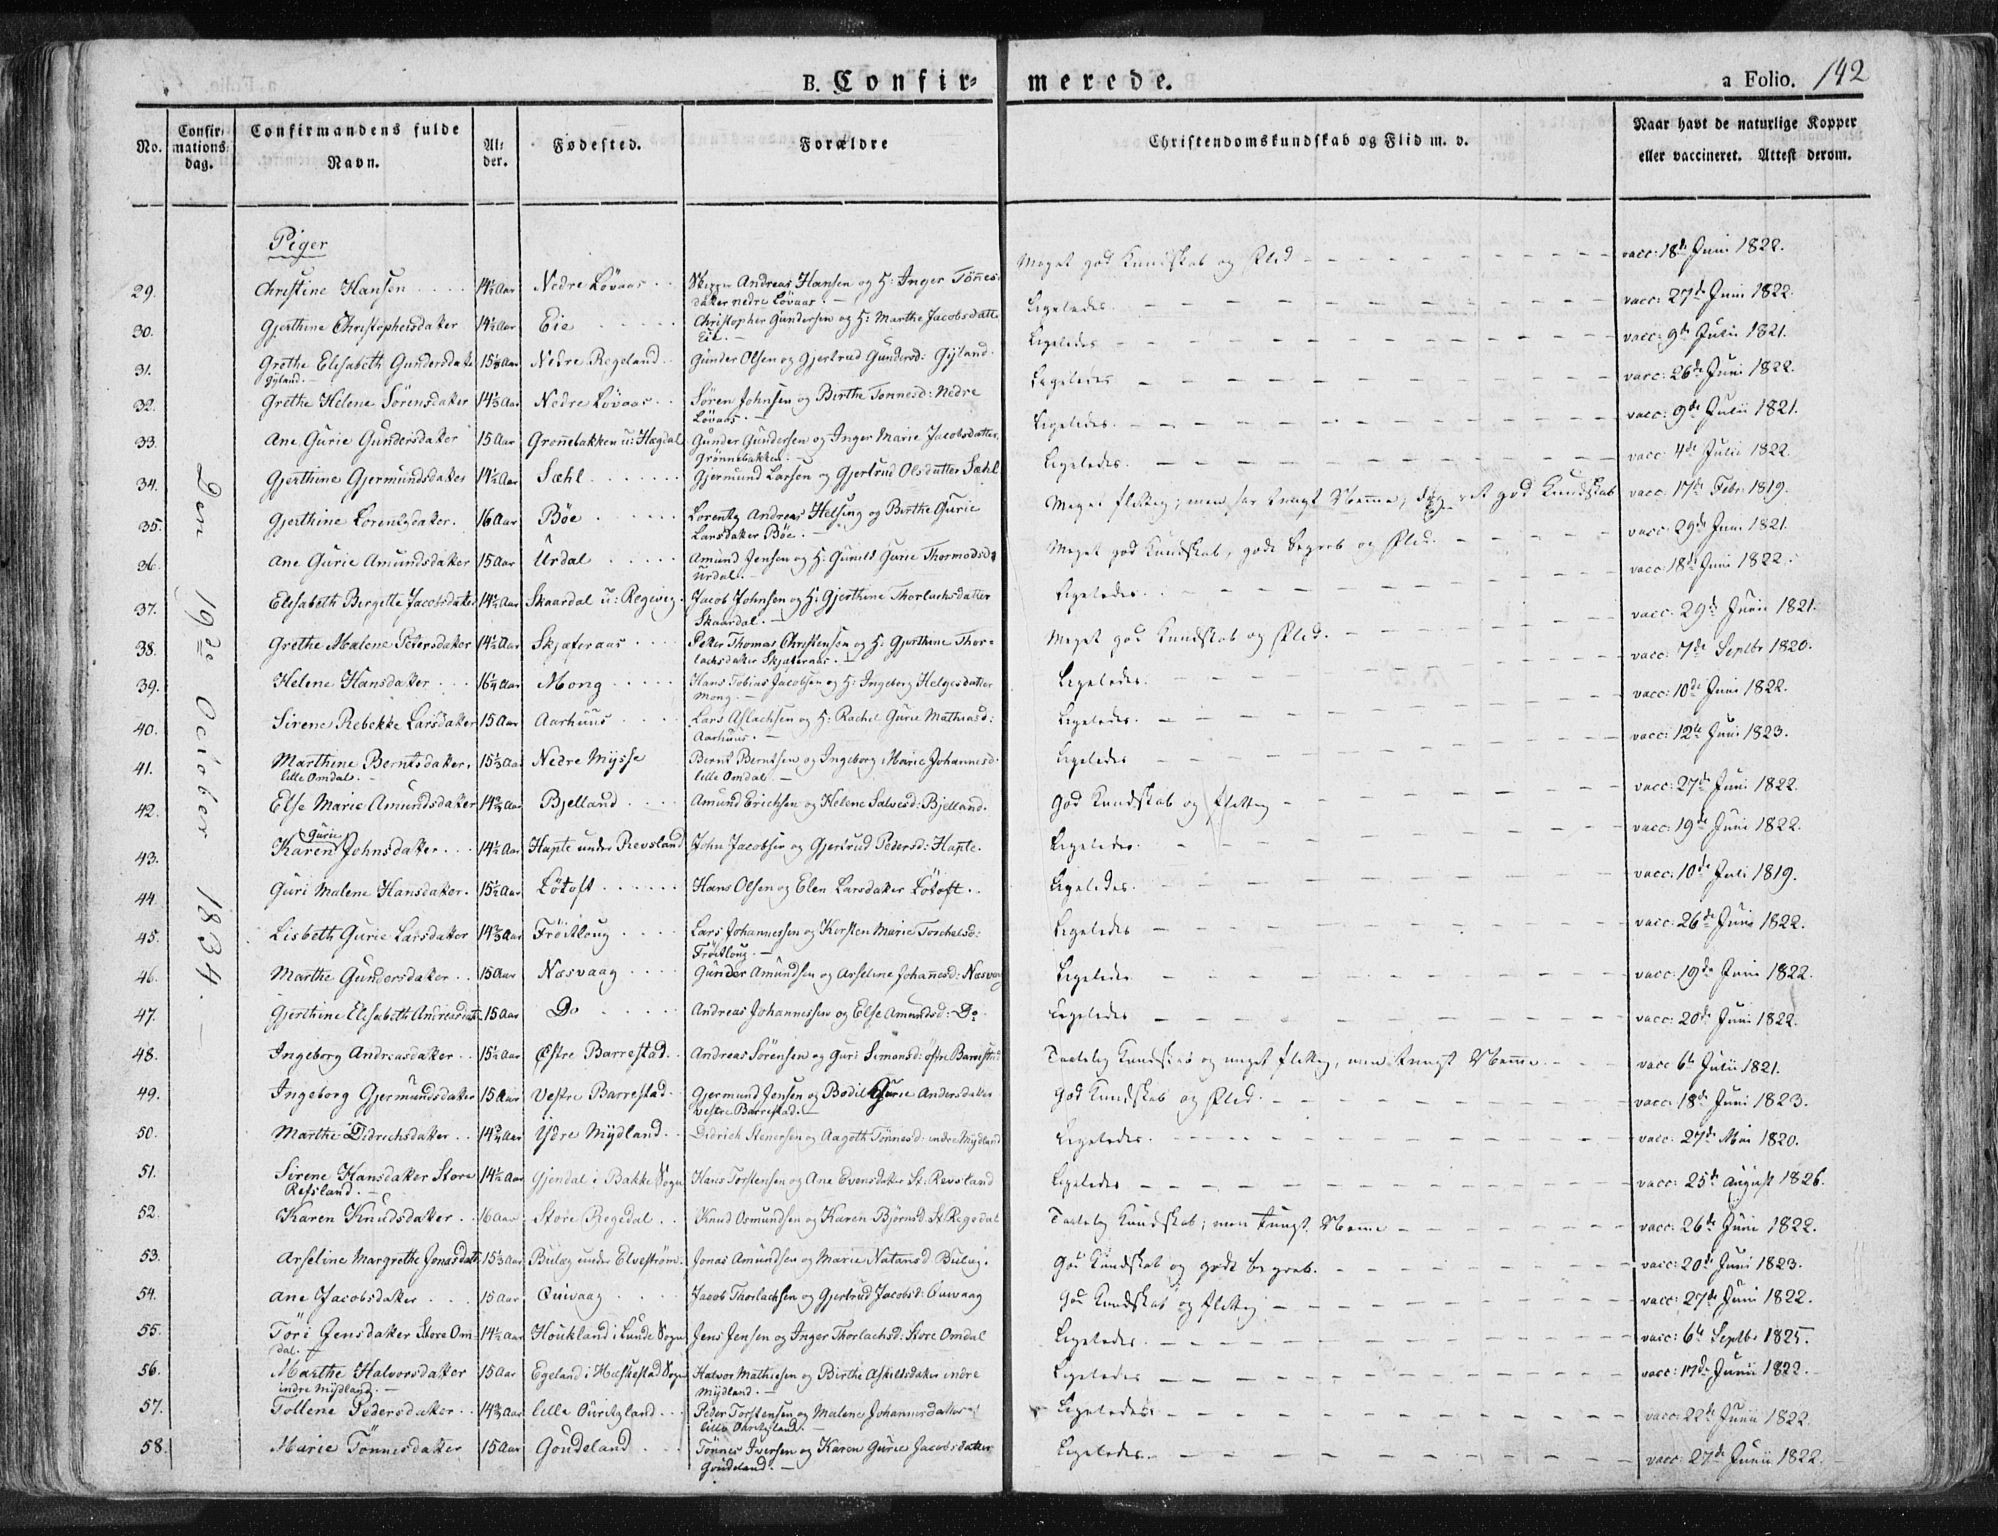 B. Confir- merede.
a Folio. 142
No. Confirmations dag. Confirmandens fulde Navn. Alder. Fødested. Forældre Christendomskundskab og Flid m. v. Naar havt de naturlige Kopper eller vaccineret. Attest derom.
Den 19de October 1834.
Piger
29. Christine Hansen 14½ Aar Nedre Løvaas Skipper Andreas Hansen og H: Inger Tønnesdatter nedre Løvaas. Meget god Kundskab og Flid vacc: 18de Juni 1822.
30. Gjerthine Christophersdatter 14½ Aar Eie Christopher Gundersen og H: Marthe Jacobsdatter Eie. Ligeledes vacc: 27de Juni 1822.
31. Grethe Elisabeth Gundersdatter Gyland. Nedre Regeland Gunder Olsen og Gjertrud Gundersd: Gyland. Ligeledes vacc: 9de Julii 1821.
32. Grethe Helene Sørensdatter Nedre Løvaas Søren Johnsen og Birthe Tønnesd: Nedre Løvaas. Ligeledes vacc: 26de Juni 1822.
33. Ane Gurie Gundersdatter 15 Aar Grønebakken u: Hægdal Gunder Gundersen og Inger Marie Jacobsdatter Grønnebakken. Ligeledes. vacc: 9de Julii 1821.
34. Gjerthine Gjermundsdatter 14½ Aar Sæhl Gjermund Larsen og Gjertrud Olsdatter Sæhl Ligeledes. vacc: 4de Julii 1822.
35. Gjerthine Lorentzdatter. 16 Aar Bøe Lorentz Andreas Helsing og Birthe Gurie Larsdatter Bøe. Meget flittig; men har tungt Nemme; dog ret god Kundskab vacc: 17de Febr: 1819.
36. Ane Gurie Amundsdatter 15 Aar Urdal Amund Jensen og H: Gunild Gurie Thormodsd: Urdal. Meget god Kundskab, gode Begreb og Flid. vacc: 29de Juni 1821.
37. Elisabeth Birgitte Jacobsdatter 14½ Aar Skaardal u: Regevig. Jacob Johnsen og H: Gjerthine Thorlachsdatter Skaardal. Ligeledes. vacc: 18de Juni 1822.
38. Grethe Malene Petersdatter 14½ Aar Skjæferaas Peter Thomas Christensen og H: Gjerthine Thorlachsdatter Skjæferaas. Meget god Kundskab og Flid. vacc: 29de Junii 1821.
39. Helene Hansdatter 16¼ Aar Mong Hans Tobias Jacobsen og H: Ingeborg Helgesdatter Mong. Ligeledes. vacc: 7de Septbr 1820.
40. Sirene Rebekke Larsdatter 15 Aar Aarhuus Lars Aslachsen og H: Rachel Gurie Mathiasd: Aarhuus. Ligeledes. vacc: 10de Juni 1822.
41. Marthine Berntsdatter. lille Omdal. 15⅓ Aar Nedre Mysse Bernt Berntsen og Ingeborg Marie Johannesd: lille Omdal. Ligeledes vacc: 12te Juni 1823.
42. Else Marie Amundsdatter Aar Bjelland Amund Erichsen og Helene Salvesd: Bjelland. God Kundskab og flittig vacc: 27de Juni 1822.
43. Karen Gurie Johnsdatter 14½ Aar Hapte under Revsland John Jacobsen og Gjertrud Pedersd: Hapte. Ligeledes. vacc: 19de Juni 1822.
44. Guri Malene Hansdatter. 15½ Aar Løtoft Hans Olsen og Elen Larsdatter Løtoft. Ligeledes. vacc: 10de Juli 1819.
45. Lisbeth Gurie Larsdatter Aar Frøitloug Lars Johannessen og Kirsten Marie Toschelsd: Frøitloug. Ligeledes vacc: 26de Juni 1822.
46. Marthe Gundersdatter 15 Aar Næsvaag Gunder Amundsen og Arseline Johanesd: Næsvaag Ligeledes. vacc: 19de Juni 1822.
47. Gjerthine Elisabeth Andreasdatter 15 Aar Do Andreas Johannessen og Else Amundsd: Do. Ligeledes vacc: 20de Juni 1822.
48. Ingeborg Andreasdatter 15½ Aar Østre Barrestad. Andreas Sørensen og Guri Simonsd: østre Barrestad Taalelig Kundskab og meget flittig, men tungt Nemme. vacc 6te Julii 1821.
49. Ingeborg Gjermundsdatter 15 Aar vestre Barrestad Gjermund Jensen og Bodil Gurie Andersdatter vestre Barrestad. God Kundskab og Flid. vacc: 18de Juni 1823.
50. Marthe Didrichsdatter Aar Ydre Mydland. Didrich Stenersen og Aagoth Tønnesd: indre Mydland Ligeledes. vacc: 27de Mai 1820.
51. Sirene Hansdatter Store Refsland. 14½ Aar Gjendal i Bakke Sogn Hans Torstensen og Ane Evensdatter St: Revsland Ligeledes vacc: 25de August 1826.
52. Karen Knudsdatter 16 Aar Store Regedal Knud Osmundsen og Karen Bjørnsd: St: Regedal Taalelig Kundskab; men tungt Nemme vacc: 26de Juni 1822.
53. Arseline Margrethe Jonasdatter 15⅓ Aar Bulæg under Elvestrøm. Jonas Amundsen og Marie Natansd Bulæg. God Kundskab og gode begreb. vacc: 20de Juni 1823.
54. Ane Jacobsdatter 15 Aar Quivaag Jacob Thorlachsen og Gjertrud Jacobsd: Quivaag God Kundskab og flittig vacc: 27de Juni 1822.
55. Tøri Jensdatter Store Omdal. 14½ Aar Houkland i Lunde Sogn Jens Jensen og Inger Thorlachsd: Store Omdal Ligeledes. vacc: 6te Septbr 1825.
56. Marthe Halvorsdatter indre Mydland. 15 Aar Egeland i Hæskestad Sogn Halvor Mathiesen og Birthe Askildsdatter indre Mydland. Ligeledes vacc: 17de Junii 1822.
57. Tollene Pedersdatter Aar lille Peder Torstensen og Malene Johannisdatter lille Ligeledes. vacc: 22de Junii 1822.
58. Marie Tønnesdatter 15 Aar Goudeland Tønnes Iversen og Karen Gurie Jacobsdatter Goudeland. Ligeledes. vacc: 27de Junii 1822.